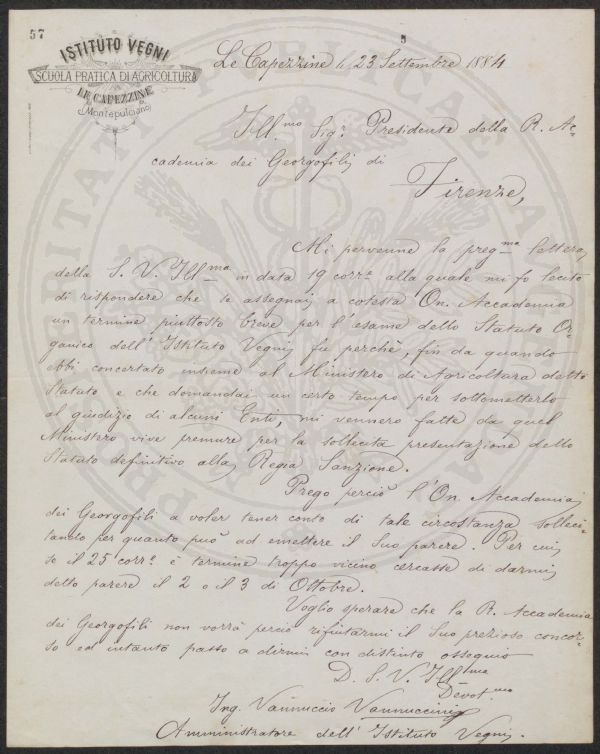 57
5
ISTITUTO VEGNI
SCUOLA PRATICA DI AGRICOLTURA
LE CAPEZZINE
(Montepulciano)
Le Capezzine li 23 Settembre 1884
Ill.mo Sig.r Presidente della R. Ac=
cademia dei Georgofili di
Firenze,
Mi pervenne la preg.ma lettera
della S. V. Ill.ma in data 19 corr.e alla quale mi fo lecito
di rispondere che se assegnai a cotesta On. Accademia
un termine piuttosto breve per l'esame dello Statuto Or=
ganico dell'Istituto Vegni fu perchè, fin da quando
ebbi concertato insieme al Ministero di Agricoltura detto
Statuto e che domandai un certo tempo per sottometterlo
al giudizio di alcuni Enti, mi vennero fatte da quel
Ministero vive premure per la sollecita presentazione dello
Statuto definitivo alla Regia Sanzione.
Prego perciò l'On. Accademia
dei Georgofili a voler tener conto di tale circostanza solleci=
tando per quanto può ad emettere il Suo parere. Per cui
se il 25 corr.e è termine troppo vicino cercasse di darmi
detto parere il 2 o il 3 di Ottobre.
Voglio sperare che la R. Accademia
dei Georgofili non vorrà perciò rifiutarmi il Suo prezioso concor=
so ed intanto passo a dirmi con distinto ossequio
D. S. V. Ill.ma
Devot.mo
Ing. Vannuccio Vannuccini
Amministratore dell'Istituto Vegni.